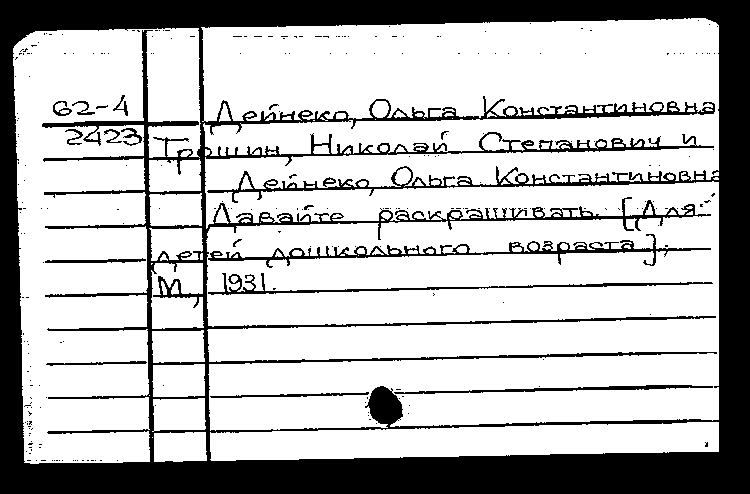 62-4 Дейнеко, Ольга Константиновна
2423 Трошин, Николай Степанович и
Дейнеко, Ольга Константиновна
Давайте раскрашивать. [Для
детей дошкольного возраста];
М., 1931.